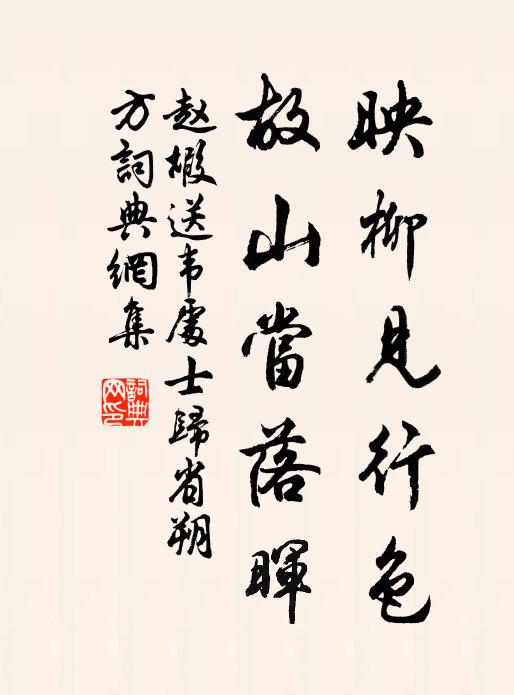 映柳見行色
故山當落暉
赵嘏送韦處士歸省朔
方詞典網集
詞典
网印